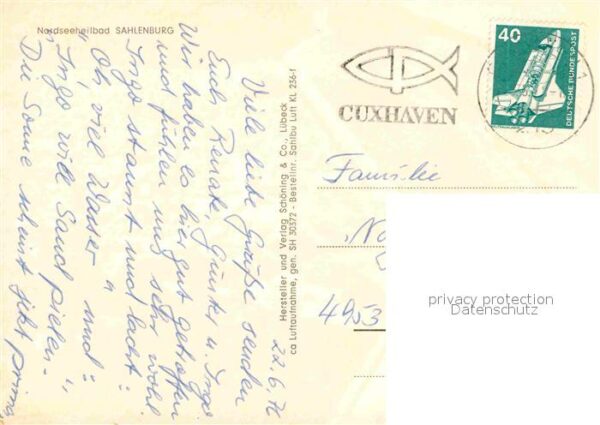 Nordseeheilbad SAHLENBURG
22.6.76
Viele liebe Grüße senden
Euch Renate, Günter u. Ingo.
Wir haben es hier gut getroffen
und fühlen uns sehr wohl.
Ingo staunt und lacht:
"Oh, viel Wasser" und:
"Ingo will Sand pielen."
Die Sonne scheint jetzt prima
Hersteller und Verlag Schöning & Co., Lübeck
ca Luftaufnahme, gen. SH 30572 - Bestellnr. Sahlbu Luft KL 236-f
CUXHAVEN
40
DEUTSCHE BUNDESPOST
Familie
4953
privacy protection
Datenschutz